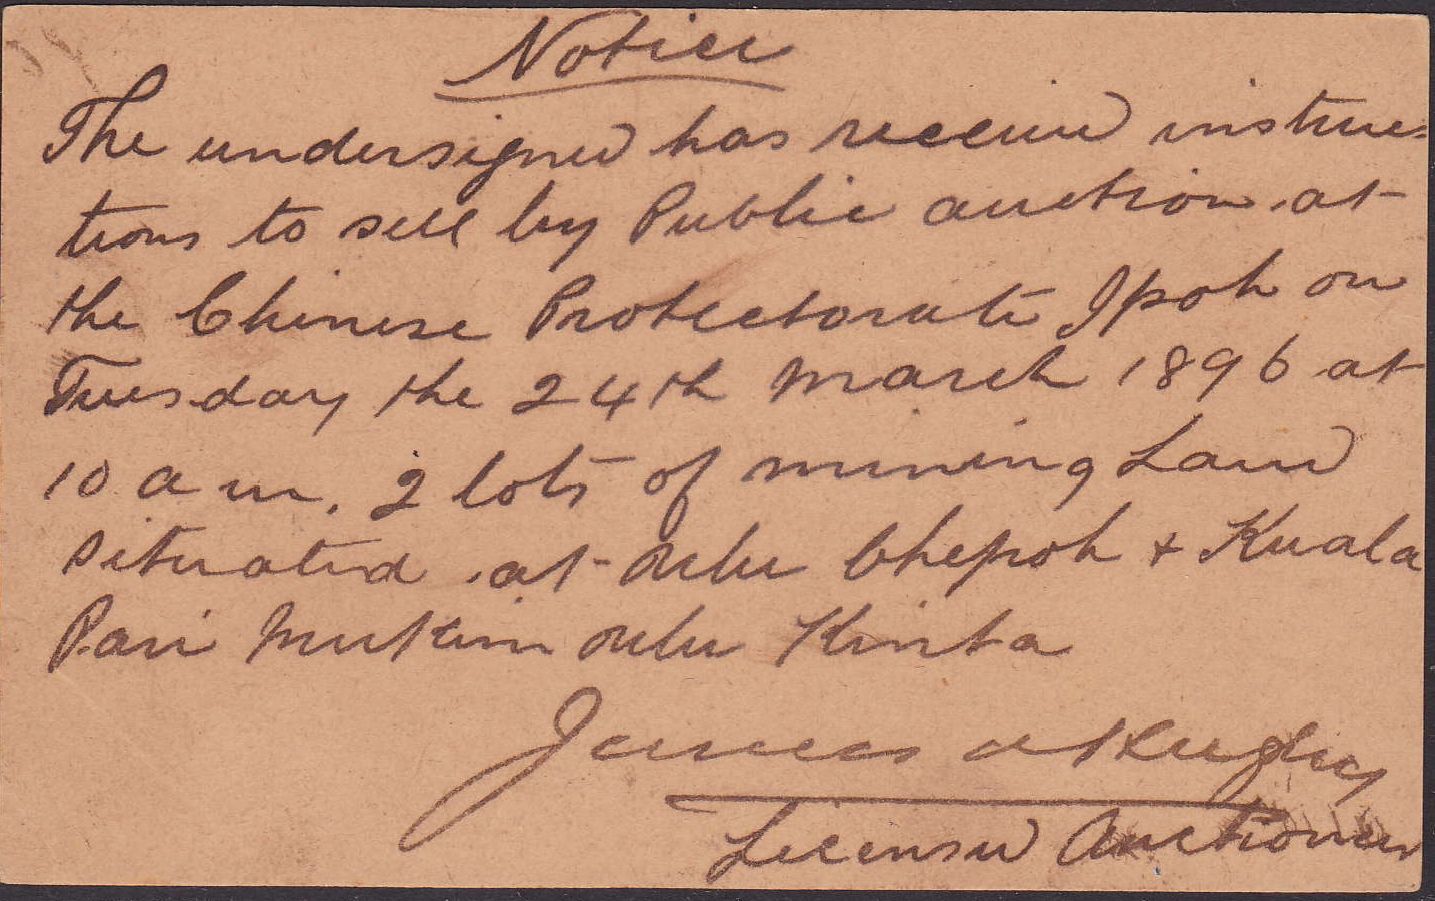 Notice
The undersigned has received instruc-
tions to sell by Public auction at
the Chinese Protectorate Ipoh on
Tuesday the 24th March 1896 at
10 a m. 2 lots of mining Land
situated at Ulu Chepoh & Kuala
Pari Mukim Ulu Kinta
James a Hughes
Licensed Auctioneer